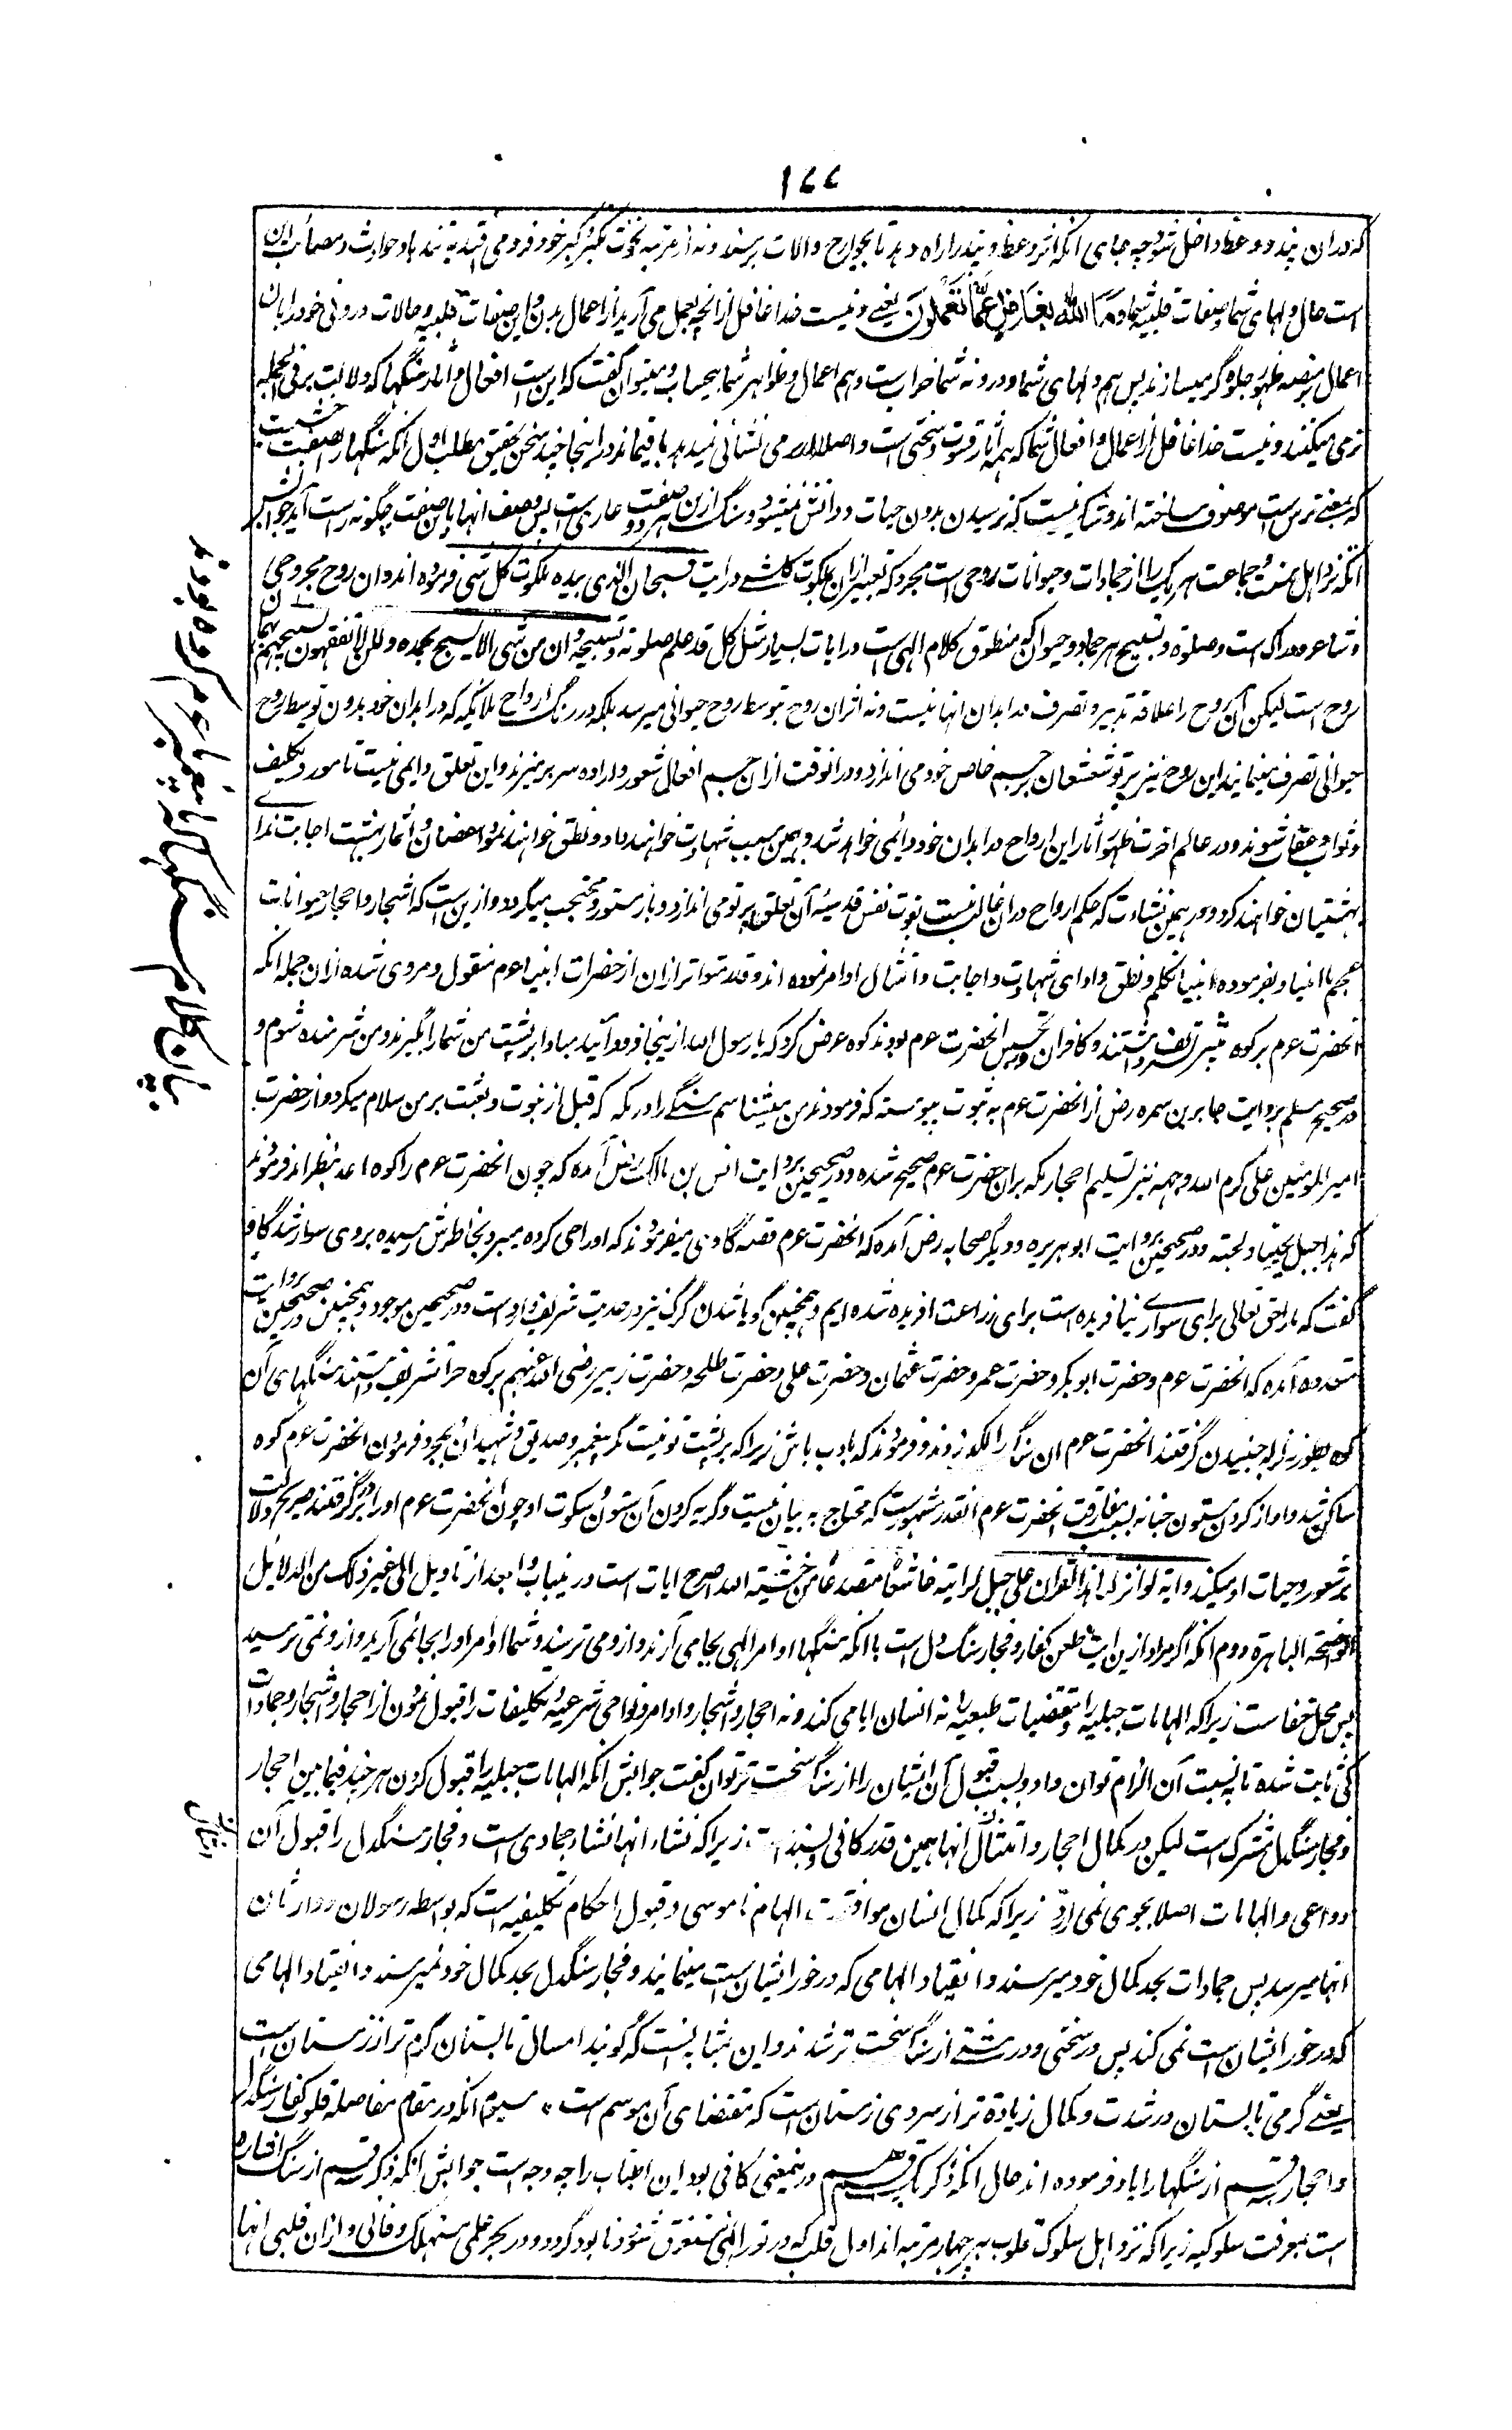 ۱۷۷
که دران پند و وعظ داخل شود چه جای انکه اثر وعظ و پند را راه دهد تا بجوارح والات برسد و نه از مرتبه نخوت تکبر و کبر خود فرو می افتد به تند باد حوادث و مصائب این
است حال دلهای شما و صفات قلبیه شما وَمَا اللّٰهُ بِغَافِلٍ عَمَّا تَعْمَلُونَ یعنے و نیست خدا غافل ازانچه بعمل می آرید از اعمال بدون این صفات قلبیه و حالات درونی خود را بان
اعمال بر منصه ظهور جلوه گر میسازند پس هم دلهای شما و درونه شما خراب ست و هم اعمال و ظواهر شما بیحساب و نمیتوان گفت که این ست افعال و اثار سنگها که دلالت بر فی الجمله
نرمی میکنند و نیست خدا غافل از اعمال و افعال شما که همه اثار قسوت و سختی است و اصلا از نرمی نشانی نمیدهد باقیماند در اینجا چند سخن تحقیق طلب اول انکه سنگها را بصفت خشیت
که بمعنے ترس ست موصوف ساخته اند و شک نیست که ترسیدن بدون حیات و دانش نمیشود و سنگ ازین هر دو صفت عاری ست پس وصف انها باین صفت چگونه راست آید جوابش
انکه نزد اهل سنت و جماعت هر یک را از جمادات و حیوانات روحی است مجرد که تعبیر ازان بملکوت کل شے در آیت فسبحان الذی بیده ملکوت کل شئ فرموده اند و ان روح مجرد حی
و شاعر و مدرک است و صلوة و تسبیح هر جماد و حیوان که منطوق کلام الهی است در ایات بسیار مثل کل قد علم صلوته و تسبیحه و ان من شئ الا یسبح بحمده ولکن لا تفقهون تسبیحهم بهمان
روح است لیکن آن روح را علاقه تدبیر و تصرف در ابدان انها نیست و نه اثر ان روح بتوسط روح حیوانی میرسد بلکه در رنگ ارواح ملائکه که در ابدان خود بدون توسط روح
حیوانی تصرف مینمایند این روح نیز پرتو شعشعان بر جسم خاص خود می اندازد و درانوقت ازان جسم افعال شعور و اراده سر بر میزند و این تعلق دایمی نیست تا مورد تکلیف
و ثواب و عقاب شوند و در عالم اخرت ظهور آثار این ارواح در ابدان خود دائمی خواهد شد و بهمین سبب شهادت خواهند داد و نطق خواهند نمود و اغصان و اثمار بهشت اجابت ندای
بهشتیان خواهند کرد و در همین نشاءت که حکم ارواح دران غالب نیست بقوت نفس قدسیه آن تعلق پرتو می اندازد و باز مستور و محتجب میگردد و ازین ست که اشجار و احجار و حیوانات
عجم با انبیا و بفرموده انبیا تکلم و نطق و ادای شهادت و اجابت و امتثال اوامر نموده اند و قدر متواتر ازان از حضرات انبیا عوم منقول و مروی شده ازان جمله انکه
انحضرت عوم بر کوه ثبیر تشریف داشتند و کافران در تجسس انحضرت عوم بودند کوه عرض کرد که یا رسول الله ازینجا فرود آئید مبادا بر پشت من شما را بگیرند و من شرمنده شوم و
در صحیح مسلم بروایت جابر بن سمره رض از انحضرت عوم به ثبوت پیوسته که فرمودند من میشناسم سنگے را در مکه که قبل از نبوت و بعثت بر من سلام میکرد و از حضرت
امیر المومنین علی کرم الله وجهه نیز تسلیم احجار مکه بران حضرت عوم صحیح شده و در صحیحین بروایت انس بن مالک رض آمده که چون انحضرت عوم را کوه احد بنظر امد فرمودند
که هذا جبل یحبنا ونحبه و در صحیحین بروایت ابو هریره و دیگر صحابه رض آمده که انحضرت عوم قصه گاوی میفرمودند که او را حی کرده میبرد بخاطرش رسیده بر وی سوار شد گاو
گفت که ما را حق تعالی برای سوارے نیافریده است برای زراعت افریده شده ایم و همچنین گویا شدن گرگ نیز در حدیث شریف وارد ست و در صحیحین موجود و همچنین در صحیحین بروایات
متعدده آمده که انحضرت عوم و حضرت ابو بکر و حضرت عمر و حضرت عثمان و حضرت علی و حضرت طلحه و حضرت زبیر رضی الله عنهم بر کوه حرا تشریف داشتند سنگهای آن
کوه بطور زلزله جنبیدن گرفتند انحضرت عوم ان سنگ را لگد زدند و فرمودند که بادب باش زیرا که بر پشت تو نیست مگر پیغمبر و صدیق و شهید ان بمجرد فرمودن انحضرت عوم کوه
ساکن شد و اواز کردن ستون حنانه بسبب مفارقت انحضرت عوم انقدر مشهور ست که محتاج به بیان نیست و گریه کردن آن ستون و سکوت او چون انحضرت عوم او را در بر گرفتند صریح دلالت
بر شعور و حیات او میکند و ایه لو انزلنا هذا القران علی جبل لرایته خاشعا متصدعا من خشیته الله اصرح ایات است درین باب و ابعد از تاویل الی غیر ذلک من الدلایل
الواضحة الباهرة دوم انکه اگر مراد ازین ایت طعن کفار و فجار سنگ دل است باانکه سنگها اوامر الهی بجا می آرند و ازو می ترسند و شما اوامر او را بجا نمی آرید و ازو نمی ترسید
پس محل خفا ست زیرا که الهامات جبلیه را و مقتضیات طبعیه را نه انسان ابا می کند و نه احجار و اشجار و اوامر و نواهی شرعیه و تکلیفات را قبول نمودن از احجار و اشجار و جمادات
کی ثابت شده تا به نسبت آن الزام توان داد و بسبب قبول آن ایشان را از سنگ سخت تر توان گفت جوابش انکه الهامات جبلیه را قبول کردن هر چند فیمابین احجار
و فجار سنگدل مشترک است لیکن در کمال احجار و امتثال انها همین قدر کافی و بسند است زیرا که نشاء انها نشاء جمادی است و فجار سنگدل را قبول آن
دواعی و الهامات اصلا بجوی نمی ارزد زیرا که کمال انسان موافقت الهام ناموسی و قبول احکام تکلیفیه است که بواسطه رسولان و وارثان
انها میرسد پس جمادات بحد کمال خود میرسند و انقیاد الهامی که در خور ایشان ست مینمایند و فجار سنگدل بحد کمال خود نمیرسند و انقیاد الهامی
که در خور ایشان ست نمی کنند پس در سختی و درشتے از سنگ سخت تر شدند و این بمثابه ایست که گویند امسال تابستان گرم تر از زمستان است
یعنے گرمی تابستان در شدت و کمال زیاده تر از سردی زمستان ست که مقتضای آن موسم است، سیوم انکه در مقام مفاصله قلوب کفار سنگدل
و احجار سه قسم از سنگها را یاد فرموده اند حال انکه ذکر یک قسم هم درینمعنی کافی بود این اطناب را چه وجه است جوابش انکه ذکر سه قسم از سنگ اشاره
است بمعرفت سلوکیه زیرا که نزد اهل سلوک قلوب به چهار مرتبه اند اول قلب که در نور الهی مستغرق شود و نابود گردد و در بحر علمی مستهلک و فانی و ازان قلبی انها
بیان کلام سنگها که با پیغمبر ما عوم کرده بودند